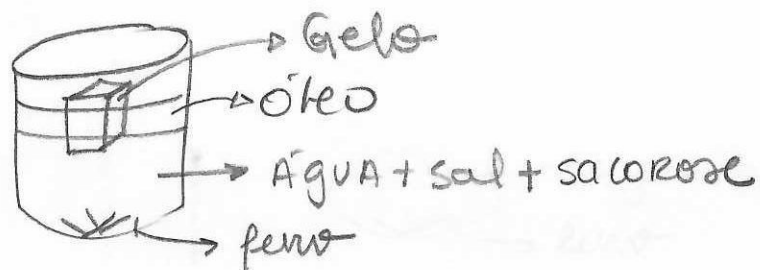 Gelo
Óleo
Água + sal + sacorose
ferro